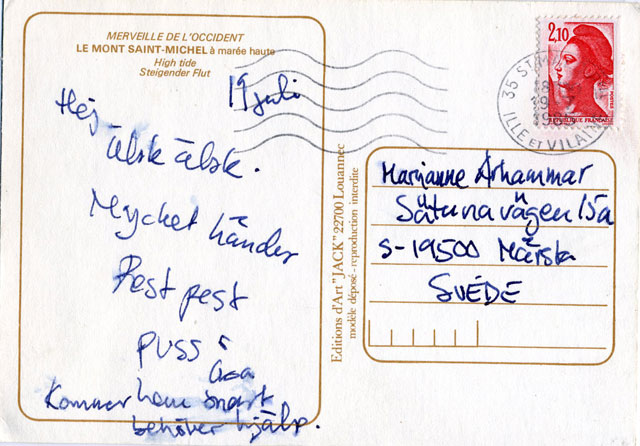 MERVEILLE DE L'OCCIDENT
LE MONT SAINT-MICHEL à marée haute
High tide
Steigender Flut
19 juli
Hej
älsk älsk.
Mycket händer
Rest pest
puss
Åsa
Kommer hem snart
behöver hjälp.
Editions d'Art "JACK" 22700 Louannec
modèle déposé - reproduction interdite
2,10
REPUBLIQUE FRANCAISE
35 ST
ILLE ET VILAINE
Marianne Arhammar
Sätunavägen 15a
S-19500 Märsta
SUÉDE